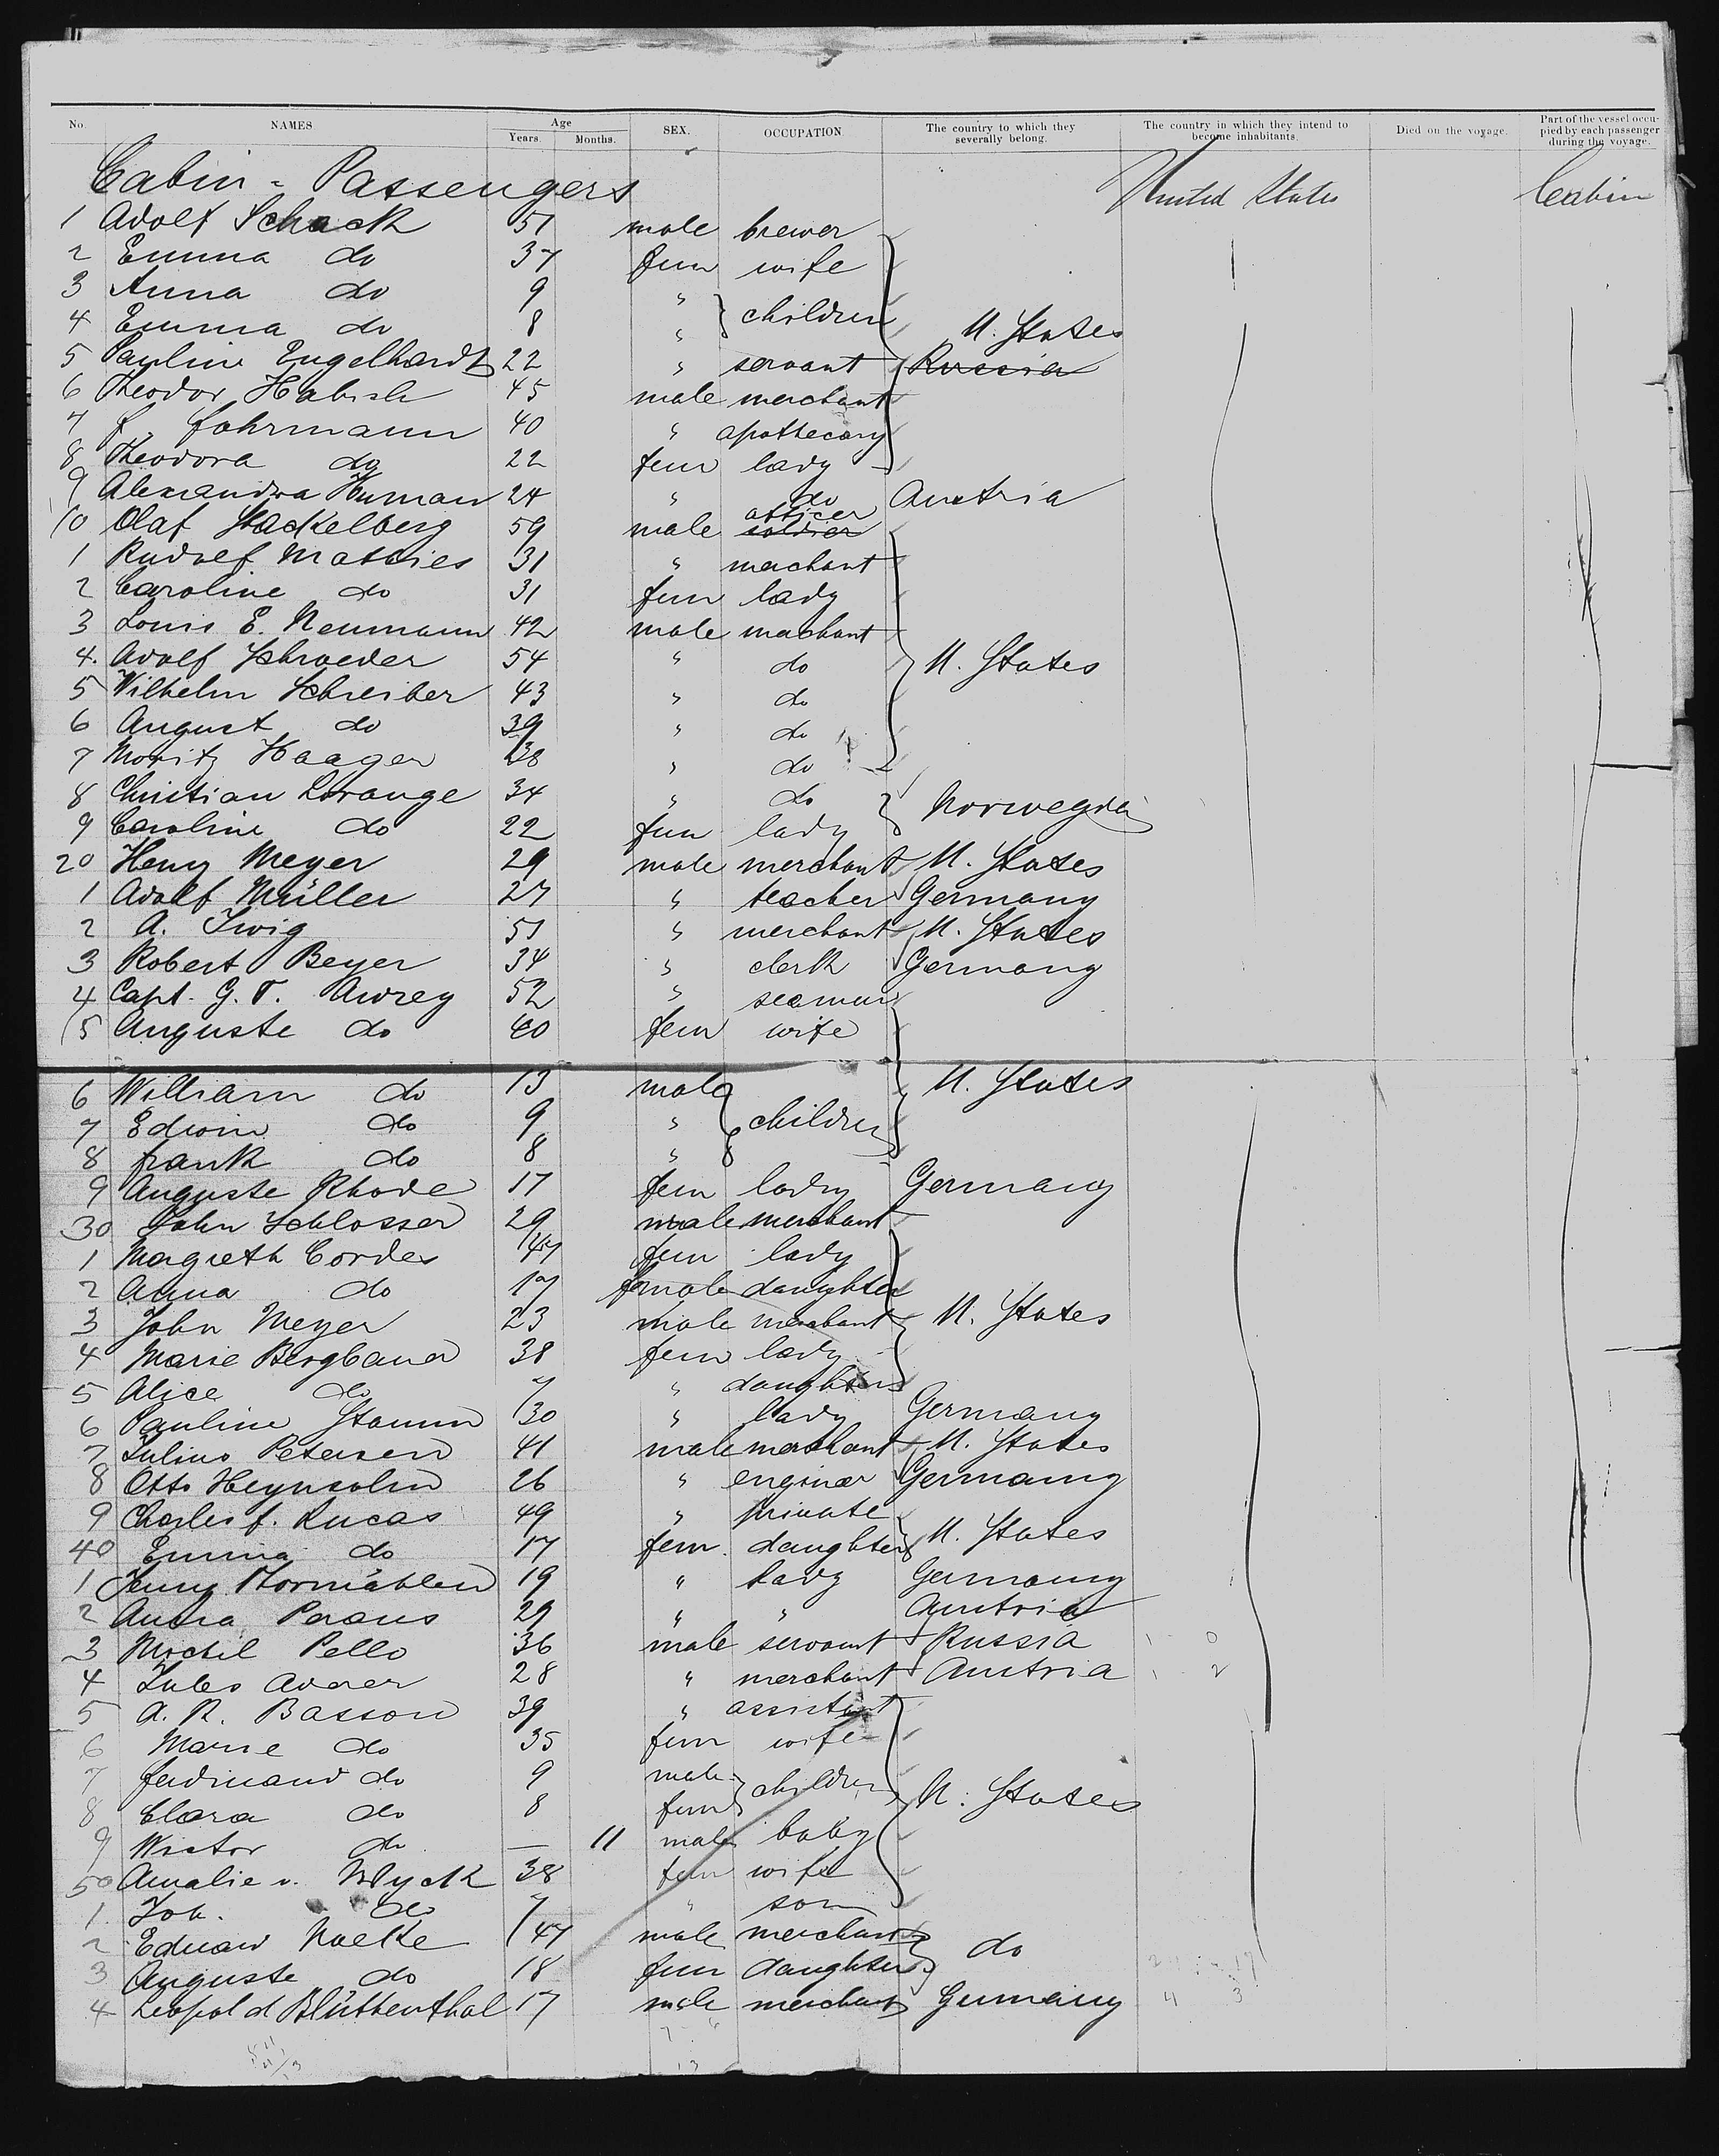 No. NAMES Age Years. Months. SEX. OCCUPATION. The country to which they severally belong. The country in which they intend to become inhabitants. Died on the voyage. Part of the vessel occupied by each passenger during the voyage.
Cabin - Passengers United States Cabin
1 Adolf Schack 51 male brewer
2 Emma do 37 fem wife
3 Anna do 9 " children
4 Emma do 8 " U. States
5 Pauline Engelhardt 22 " servant Russia
6 Theodor Habich 45 male merchant
7 f. fohrmann 40 " apothecary
8 Theodora do 22 fem lady
9 Alexandra Human 24 " do Austria
10 Olaf Stackelberg 59 male soldier officer
1 Rudolf Mathies 31 " merchant
2 Caroline do 31 fem lady
3 Louis E. Neumann 42 male merchant
4. Adolf Schroeder 54 " do U. States
5 Wilhelm Schreiber 43 " do
6 August do 39 " do
7 Moritz Haager 38 " do
8 Christian Lorange 34 " do Norwegia
9 Caroline do 22 fem lady
20 Heny Meyer 29 male merchant U. States
1 Adolf Müller 27 " teacher Germany
2 A. Iwig 51 " merchant U. States
3 Robert Beyer 34 " clerk Germany
4 Capt. G. T. 52 " seaman
5 Auguste do 40 fem wife
6 William do 13 male U. States
7 Edwin do 9 " children
8 frank do 8 "
9 Auguste Rhode 17 fem lady Germany
30 John Schlosser 29 male merchant
1 Magreth Cordes 47 fem lady
2 Anna do 17 female daughter
3 John Meyer 23 male merchant U. States
4 Marie Bergbauer 38 fem lady
5 Alice do 7 " daughter
6 Pauline Stamm 30 " lady Germany
7 Julius Petersen 41 male merchant U. States
8 Otto Heynsohn 26 " enginer Germany
9 Charles f. Lucas 49 " private
40 Emma do 17 fem. daughter U. States
1 Jenny Vormählen 19 " lady Germany
2 Anna 29 " " Austria
3 Michel Pello 36 male servant Russia
4 Jules 28 " merchant Austria
5 A. R. Basson 39 " assistant
6 Marie do 35 fem wife
7 ferdinand do 9 male children
8 Clara do 8 fem U. States
9 Wictor do — 11 male baby
50 Amalie v. Wyck 38 fem wife
1. Joh. do 7 " son
2 Eduard Noelke 47 male merchant do
3 Auguste do 18 fem daughter
4 Leopold Blüthenthal 17 male merchant Germany